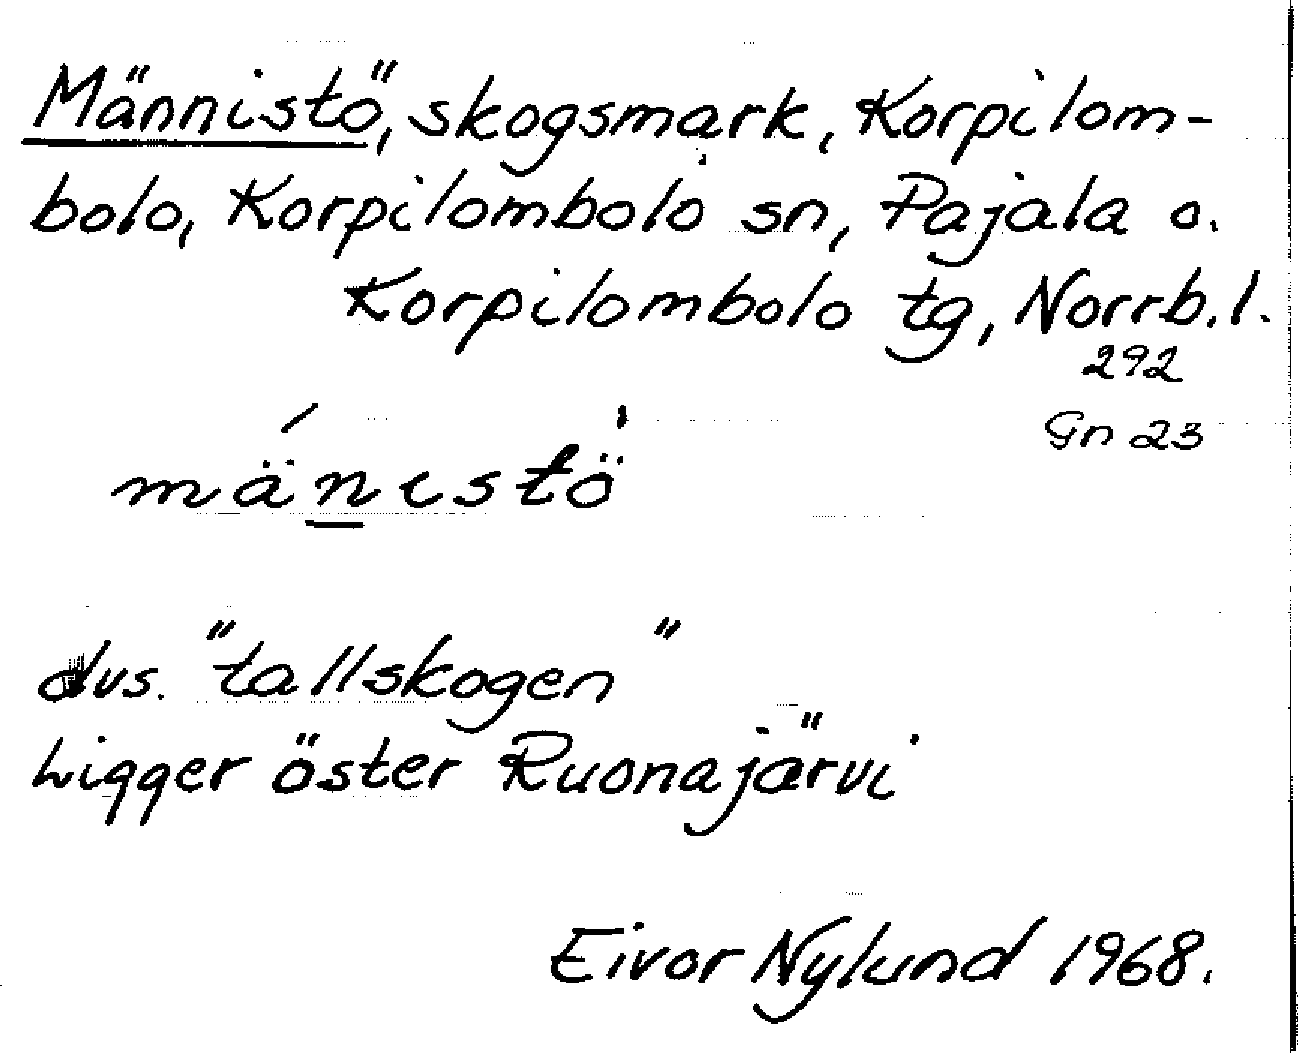 Männistö, skogsmark, Korpilom-
bolo, Korpilombolo sn, Pajala o.
Korpilombolo tg, Norrb. l.
292
Gn 23
mänistö
dvs. "tallskogen"
Ligger öster Ruonajärvi
Eivor Nylund 1968.